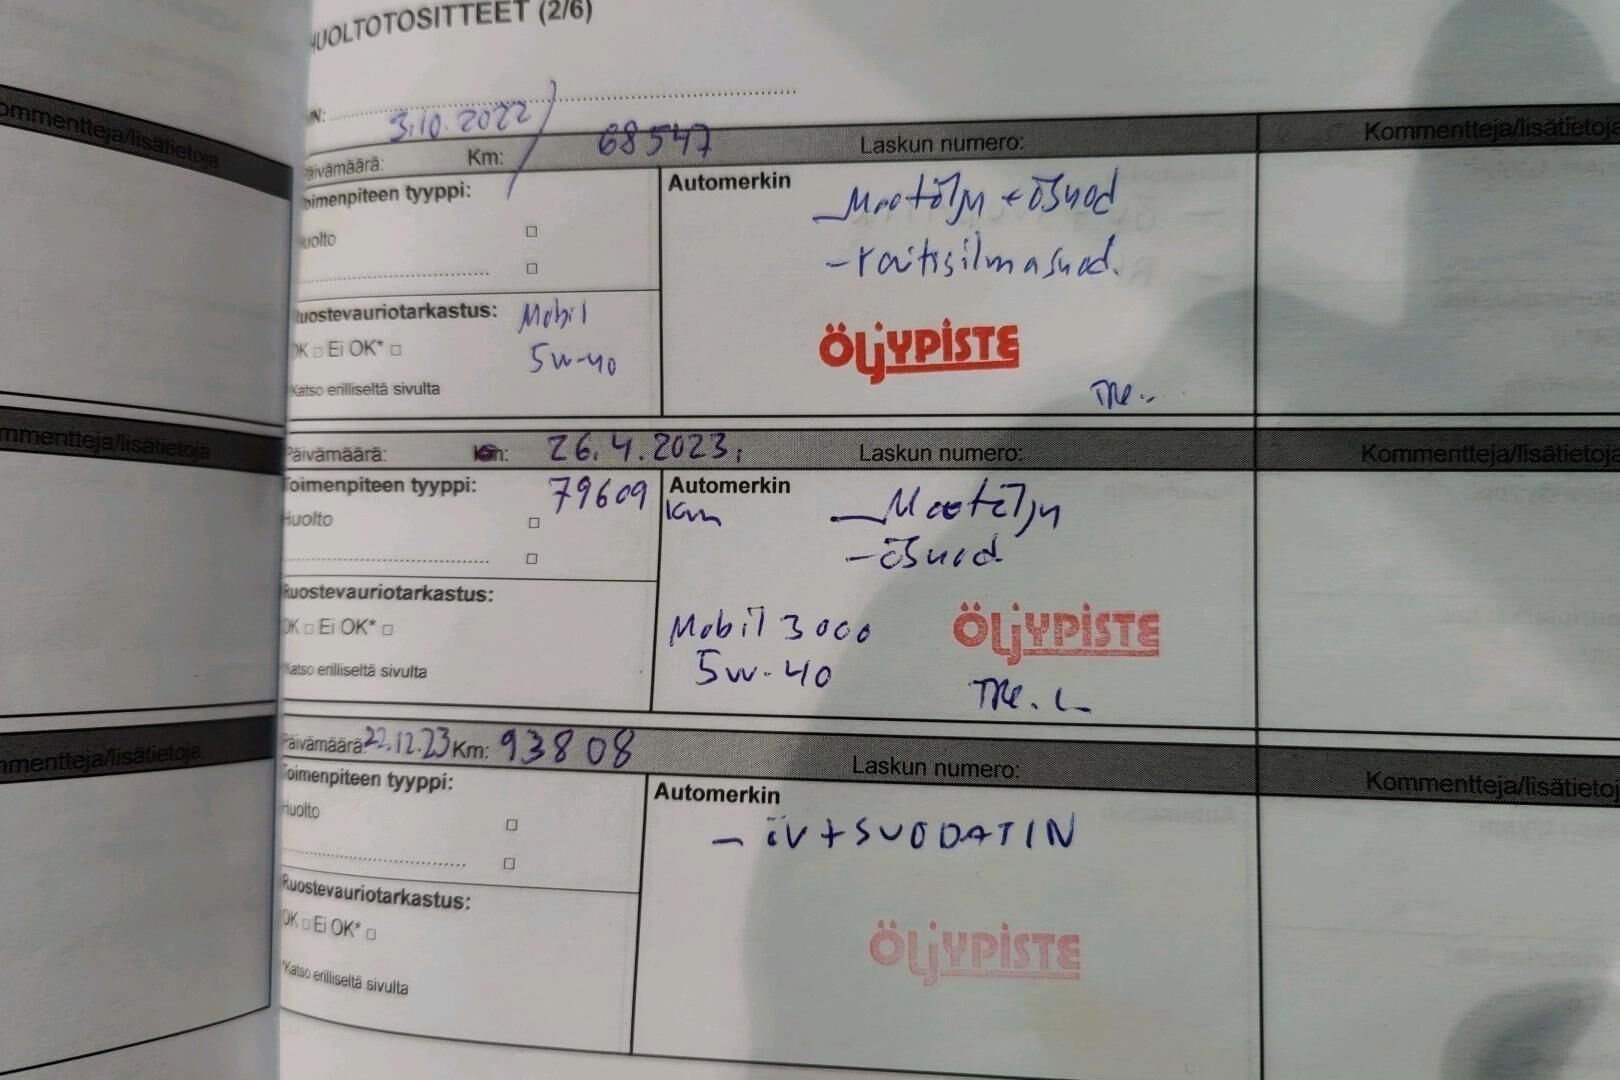 HUOLTOTOSITTEET (2/6)
3.10.2022
Päivämäärä: Km: 68547 Laskun numero: Kommentteja/lisätietoja
Toimenpiteen tyyppi: Automerkin
Huolto
- Raitisilmasuod.
Ruostevauriotarkastus: Mobil
OK □ Ei OK* □ 5W-40
ÖLJYPISTE
*Katso erilliseltä sivulta
Tre.
Päivämäärä: Km: 26.4.2023. Laskun numero: Kommentteja/lisätietoja
Toimenpiteen tyyppi: 79609 Automerkin
Km
- Moot.öljy
Huolto
- ösuod.
Ruostevauriotarkastus:
OK □ Ei OK* □
Mobil 3000
5W-40
ÖLJYPISTE
*Katso erilliseltä sivulta
Tre.
Päivämäärä: 22.12.23 Km: 93808 Laskun numero: Kommentteja/lisätietoja
Toimenpiteen tyyppi: Automerkin
Huolto
- ÖV + SUODATIN
Ruostevauriotarkastus:
OK □ Ei OK* □
ÖLJYPISTE
*Katso erilliseltä sivulta
kommentteja/lisätietoja
kommentteja/lisätietoja
kommentteja/lisätietoja